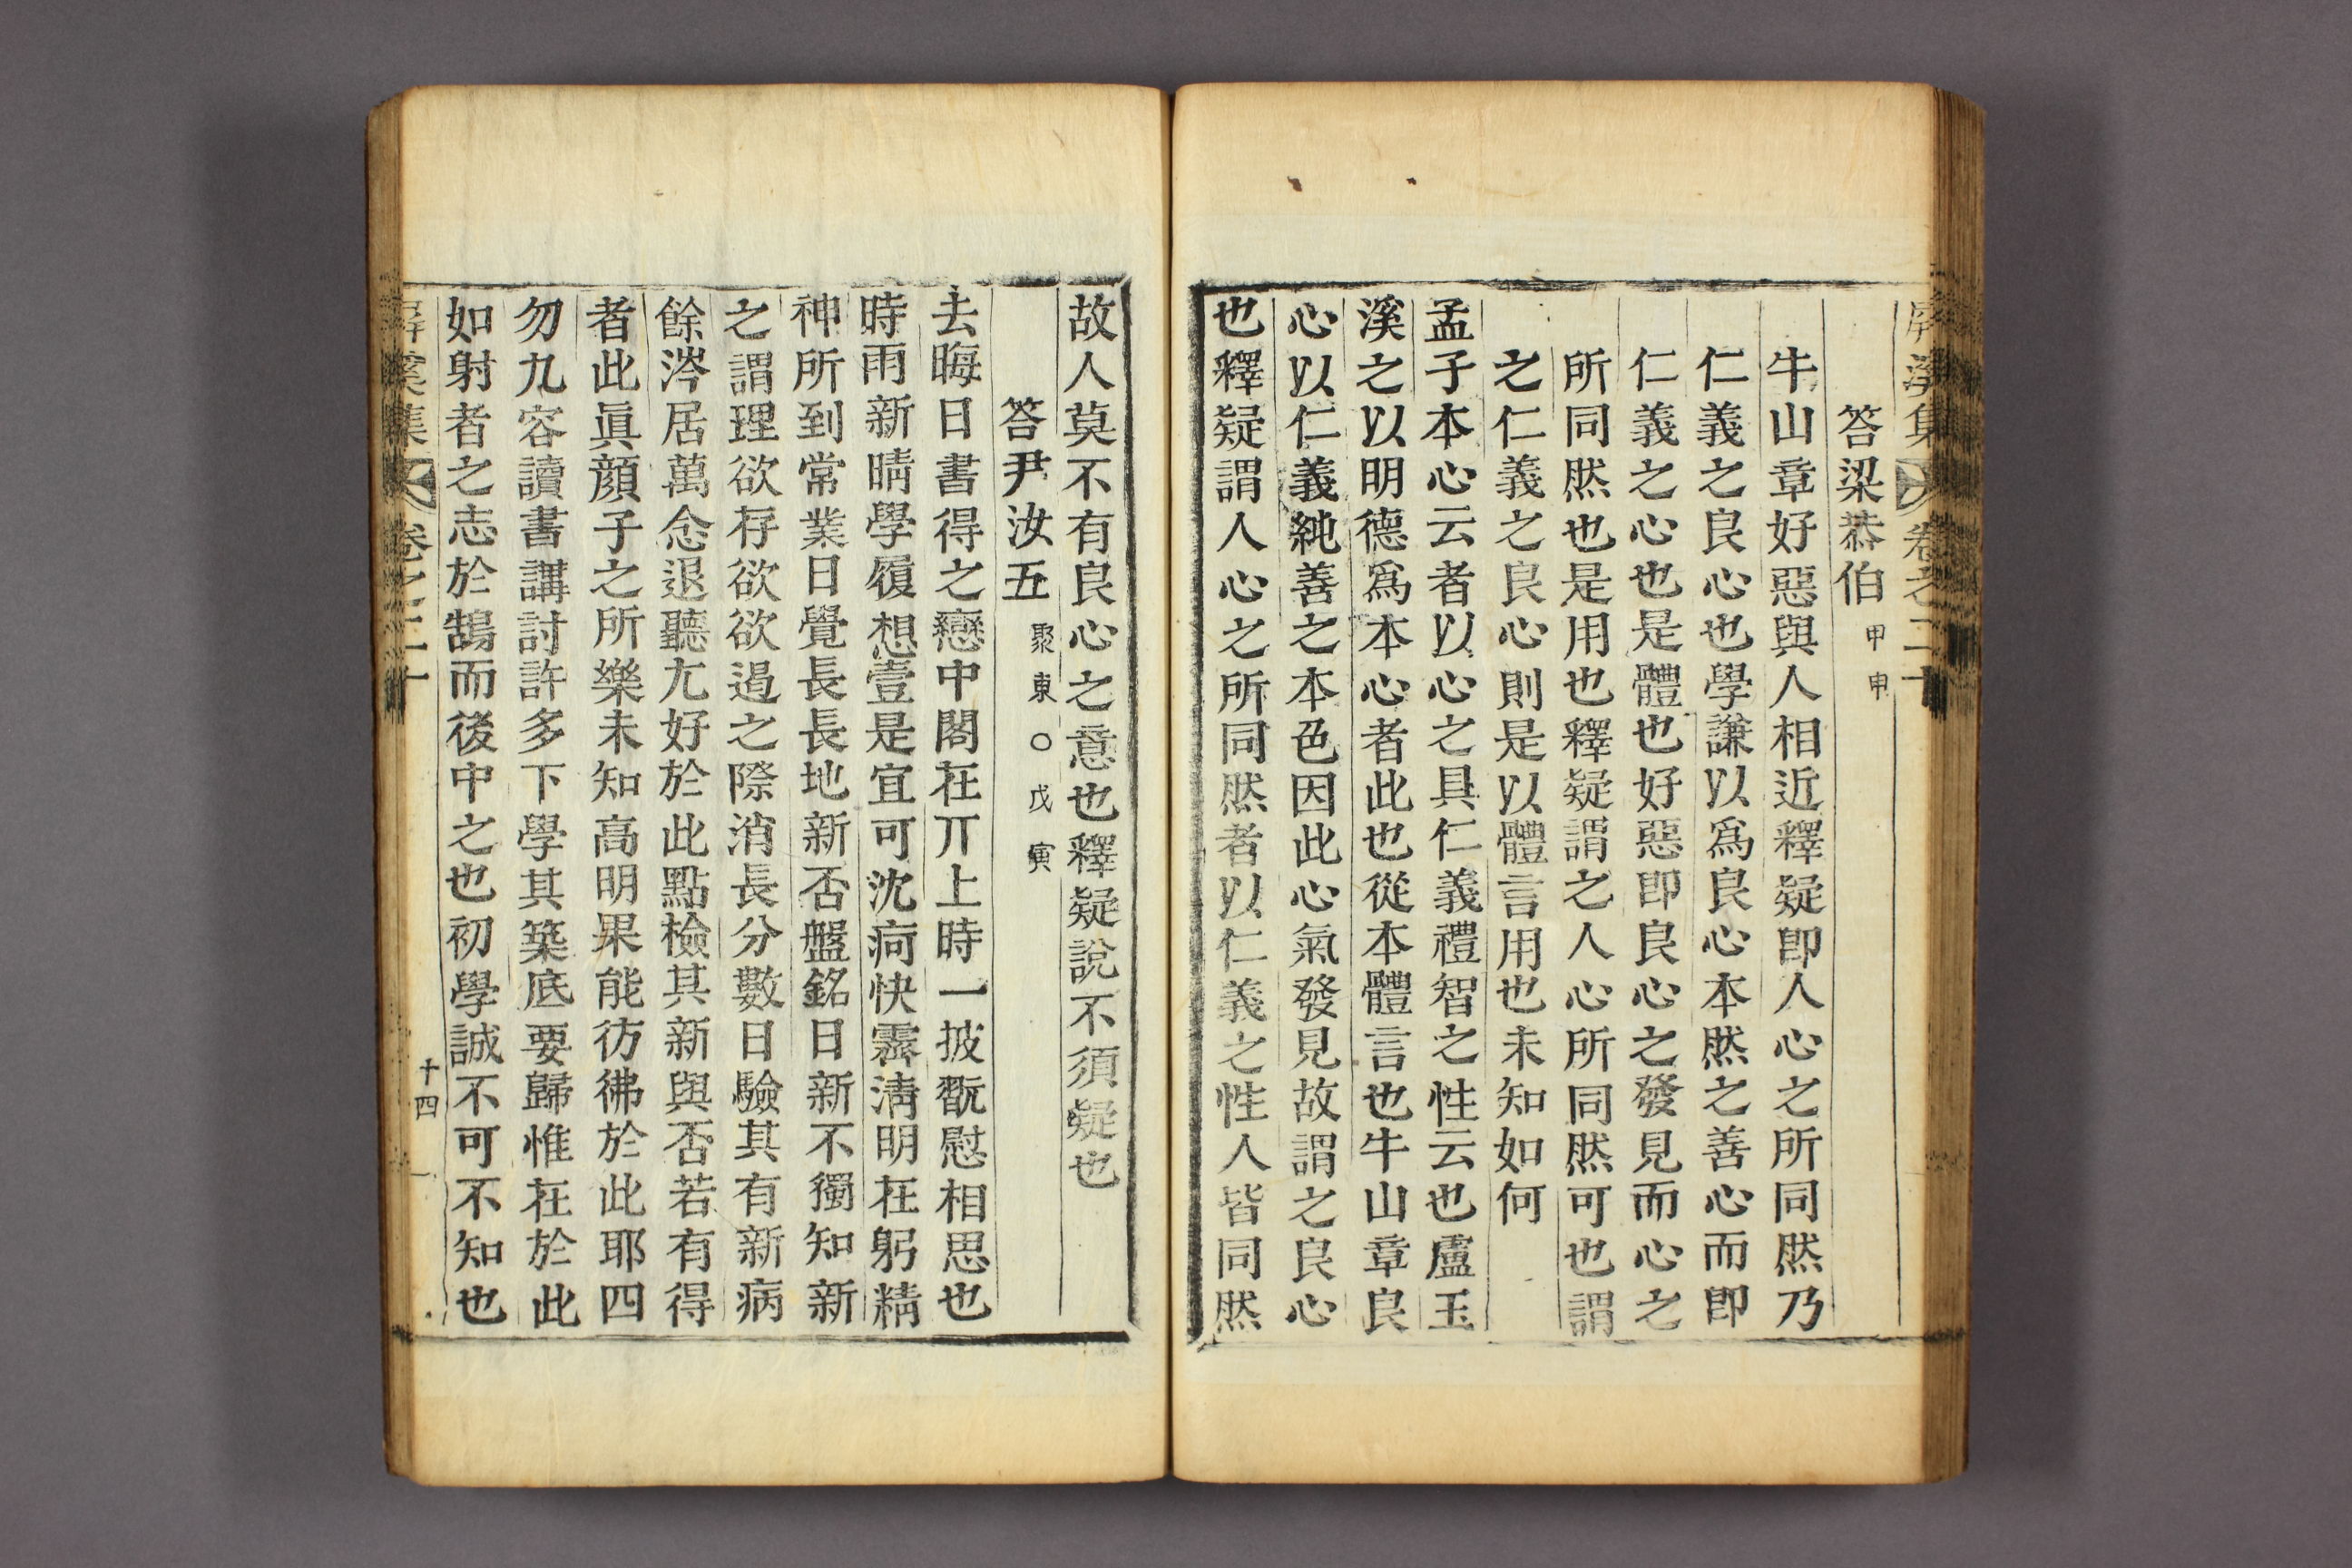 屛溪集 卷之二十
答梁恭伯 甲申
牛山章好惡與人相近釋疑卽人心之所同然乃
仁義之良心也學謙以爲良心本然之善心而卽
仁義之心也是體也好惡卽良心之發見而心之
所同然也是用也釋疑謂之人心所同然可也謂
之仁義之良心則是以體言用也未知如何
孟子本心云者以心之具仁義禮智之性云也盧玉
溪之以明德爲本心者此也從本體言也牛山章良
心以仁義純善之本色因此心氣發見故謂之良心
也釋疑謂人心之所同然者以仁義之性人皆同然
故人莫不有良心之意也釋疑說不須疑也
答尹汝五 聚東○戊寅
去晦日書得之戀中閣在丌上時一披翫慰相思也
時雨新晴學履想壹是宜可沈痾快霽淸明在躬精
神所到常業日覺長長地新否盤銘日新不獨知新
之謂理欲存欲欲遏之際消長分數日驗其有新病
餘涔居萬念退聽尤好於此點檢其新與否若有得
者此眞顔子之所樂未知高明果能彷彿於此耶四
勿九容讀書講討許多下學其築底要歸惟在於此
如射者之志於鵠而後中之也初學誠不可不知也
屛溪集 卷之二十 十四